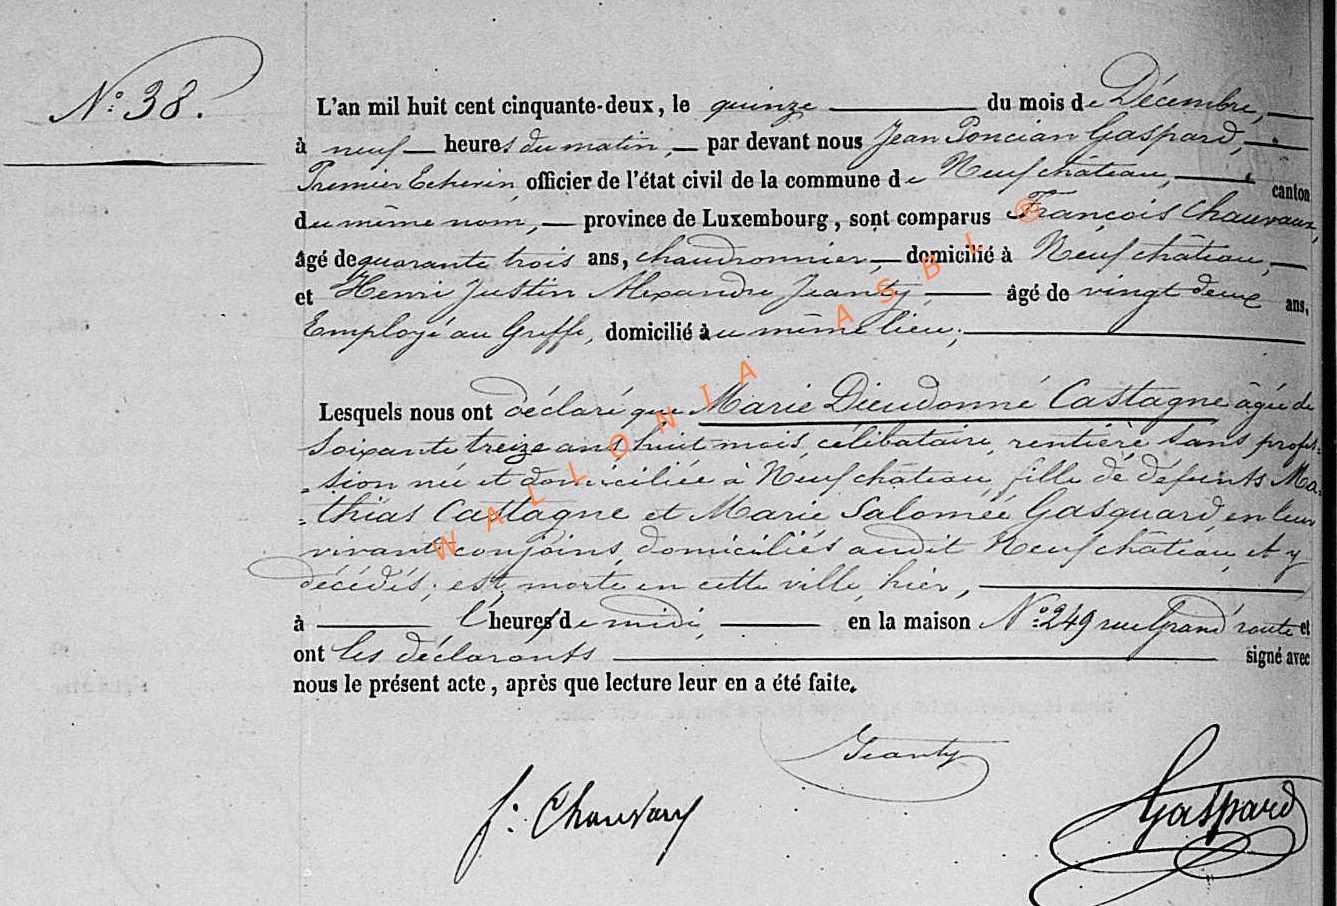 N.° 38.
L'an mil huit cent cinquante-deux, le quinze du mois de Décembre,
à neuf heures du matin, par devant nous Jean Poncian Gaspard,
Premier Echevin officier de l'état civil de la commune de Neufchâteau, canton
du même nom, province de Luxembourg, sont comparus François Chauvaux,
âgé de quarante trois ans, chaudronnier, domicilié à Neufchâteau,
et Henri Justin Alexandre Jeanty, âgé de vingt deux ans,
Employé au Greffe, domicilié au même lieu;
Lesquels nous ont déclaré que Marie Dieudonné Castagne âgée de
soixante treize ans, huit mois, célibataire, rentière sans profes-
-sion née et domiciliée à Neufchâteau, fille de défunts Ma-
-thias Castagne et Marie Salomée Gasguard, en leur
vivant conjoins, domiciliés audit Neufchâteau, et y
décédés; est morte en cette ville, hier,
à l'heure de midi, en la maison N.° 249 rue Grand route et
ont les déclarants signé avec
nous le présent acte, après que lecture leur en a été faite.
Jeanty
f. Chauvaux
Gaspard
WALLONIA ASBL ®